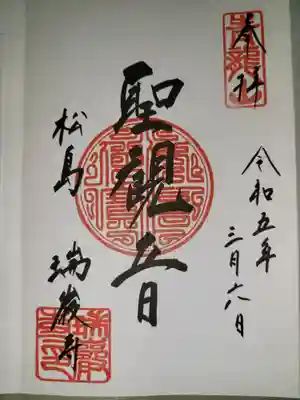 奉拝
令和五年
三月六日
聖觀音
松島 瑞巌寺